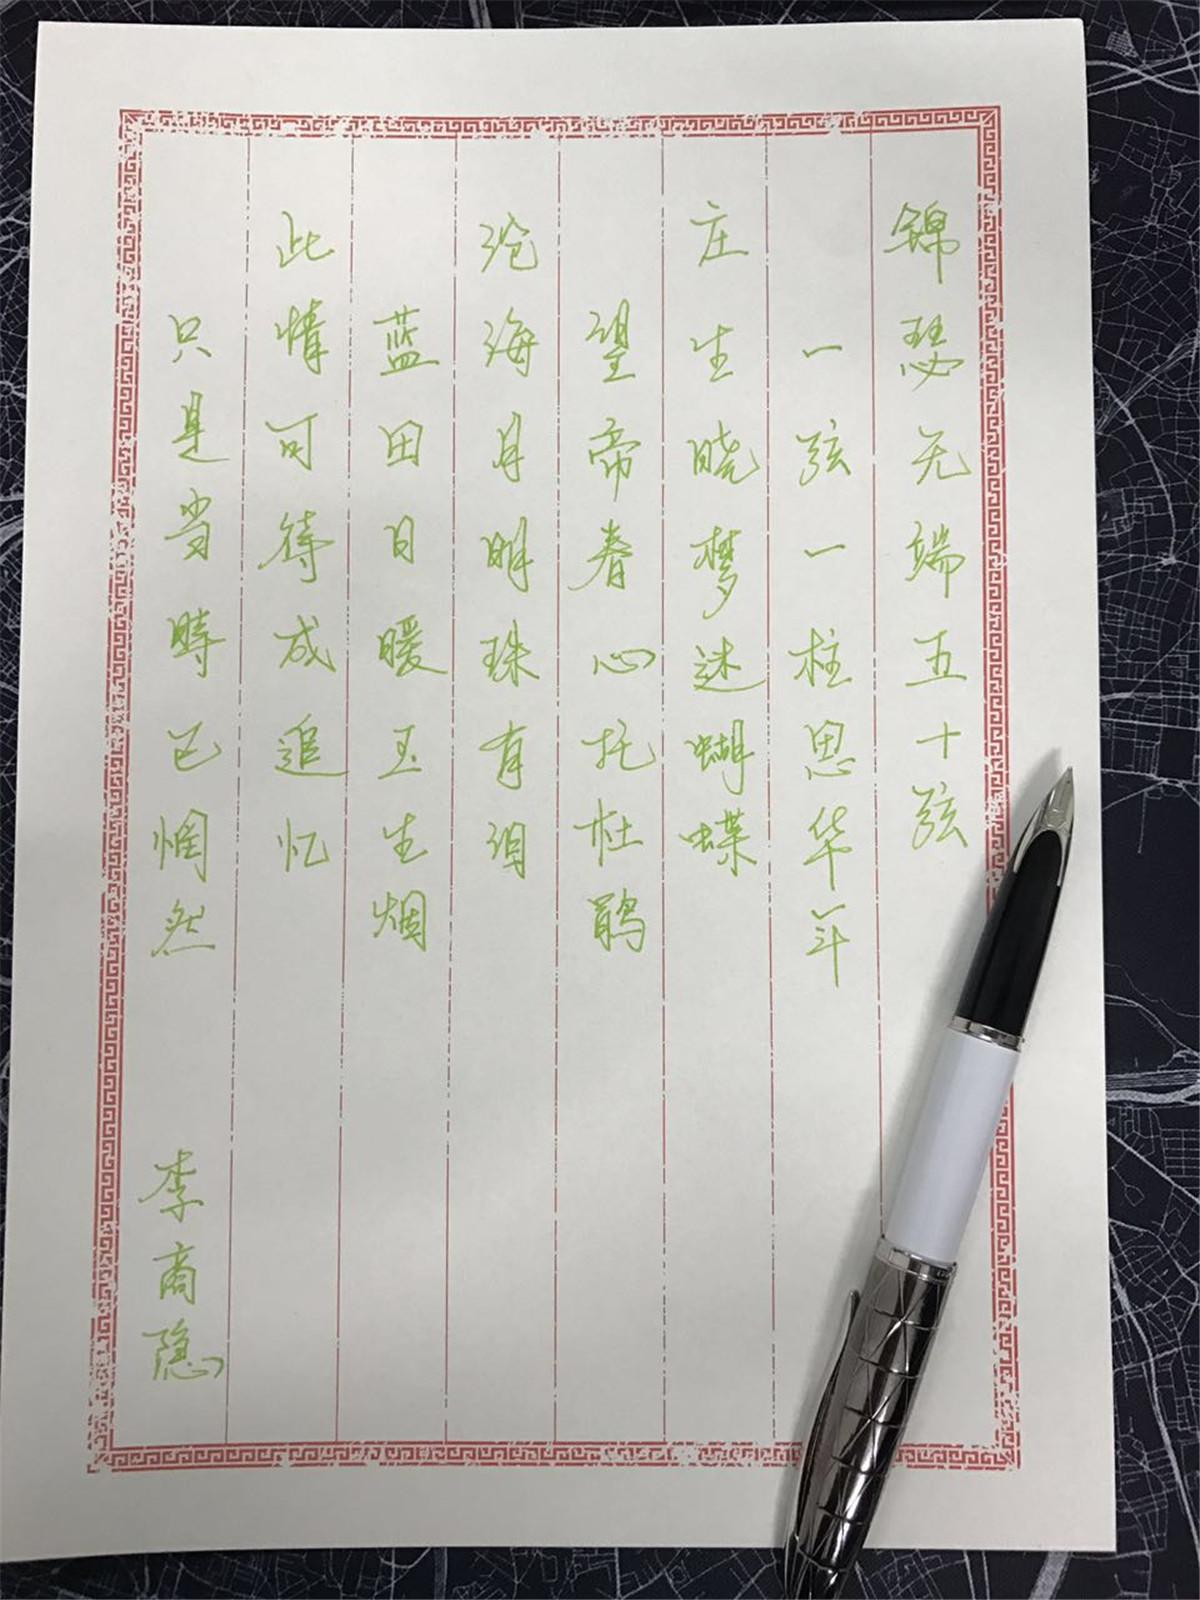 锦瑟无端五十弦
一弦一柱思华年
庄生晓梦迷蝴蝶
望帝春心托杜鹃
沧海月明珠有泪
蓝田日暖玉生烟
此情可待成追忆
只是当時已惘然
李商隐